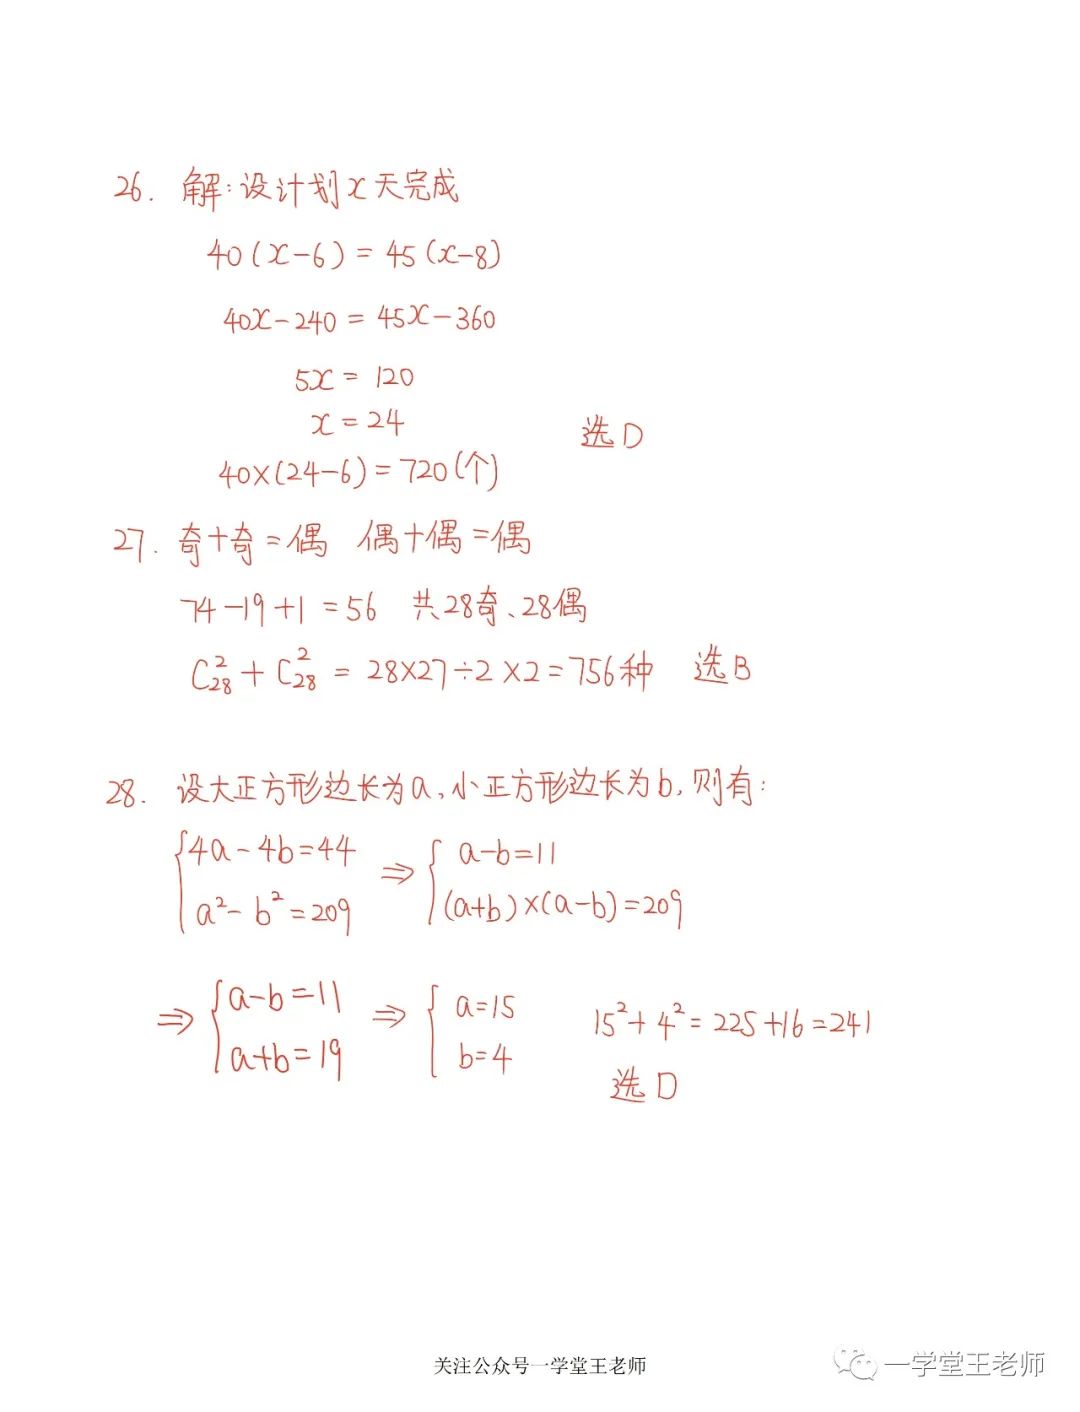 26. 解:设计划x天完成
40(x-6)=45(x-8)
40x-240=45x-360
5x=120
x=24
选D
40×(24-6)=720(个)
27. 奇+奇=偶 偶+偶=偶
74-19+1=56 共28奇、28偶
C²₂₈+C²₂₈=28×27÷2×2=756种 选B
28. 设大正方形边长为a,小正方形边长为b,则有:
{4a-4b=44 ⇒ {a-b=11
a²-b²=209 (a+b)×(a-b)=209
⇒ {a-b=11 ⇒ {a=15 15²+4²=225+16=241
a+b=19 b=4
选D
关注公众号一学堂王老师
一学堂王老师